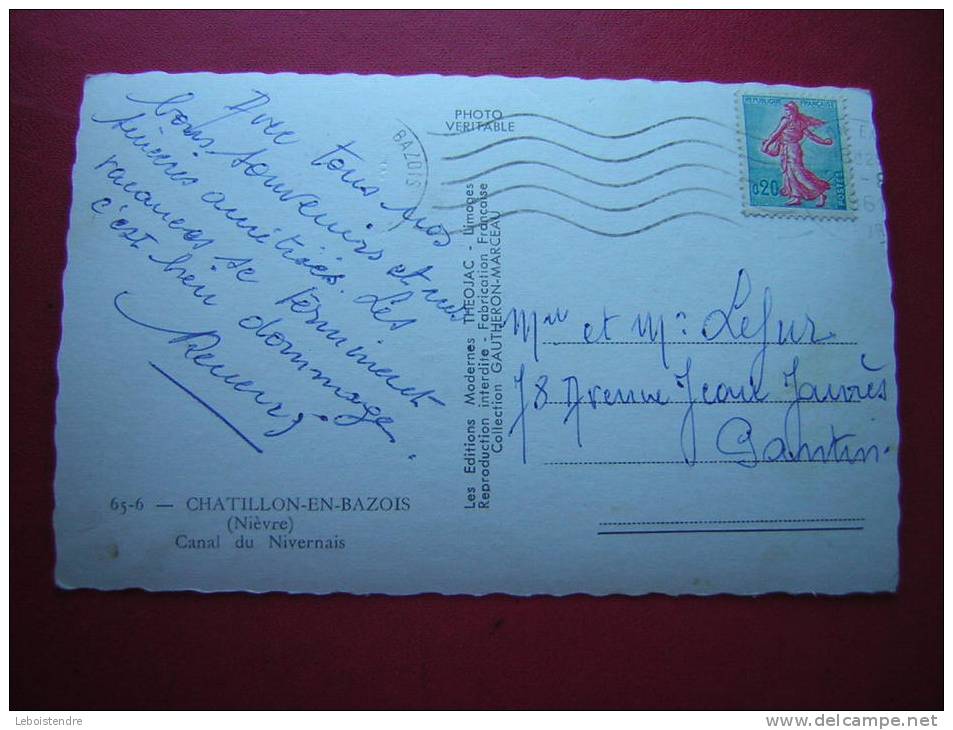 Avec tous nos
bons souvenirs et nos
sincères amitiés. Les
vacances se terminent
c'est bien dommage.
65-6 — CHATILLON-EN-BAZOIS
(Nièvre)
Canal du Nivernais
PHOTO
VERITABLE
Les Editions Modernes THEOJAC - Limoges
Reproduction interdite - Fabrication Française
Collection GAUTHERON-MARCEAU
BAZOIS
REPUBLIQUE FRANÇAISE
0,20
POSTES
Mme et Mr Lefur
78 Avenue Jean Jaurès
Pantin.
Leboistendre
www.delcampe.net